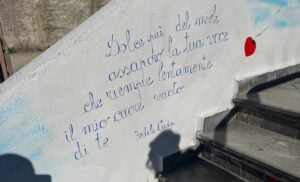 Dolce più del miele
assaporo la tua voce
che riempie lentamente
il mio cuore vuoto
di te